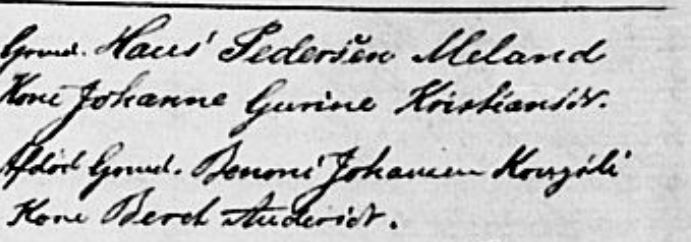 Grmd. Hans Pedersen Meland
Kone Johanne Gurine Kristiansdr.
Afdød Grmd. Benoni Johansen
Kone Beret Andersdr.